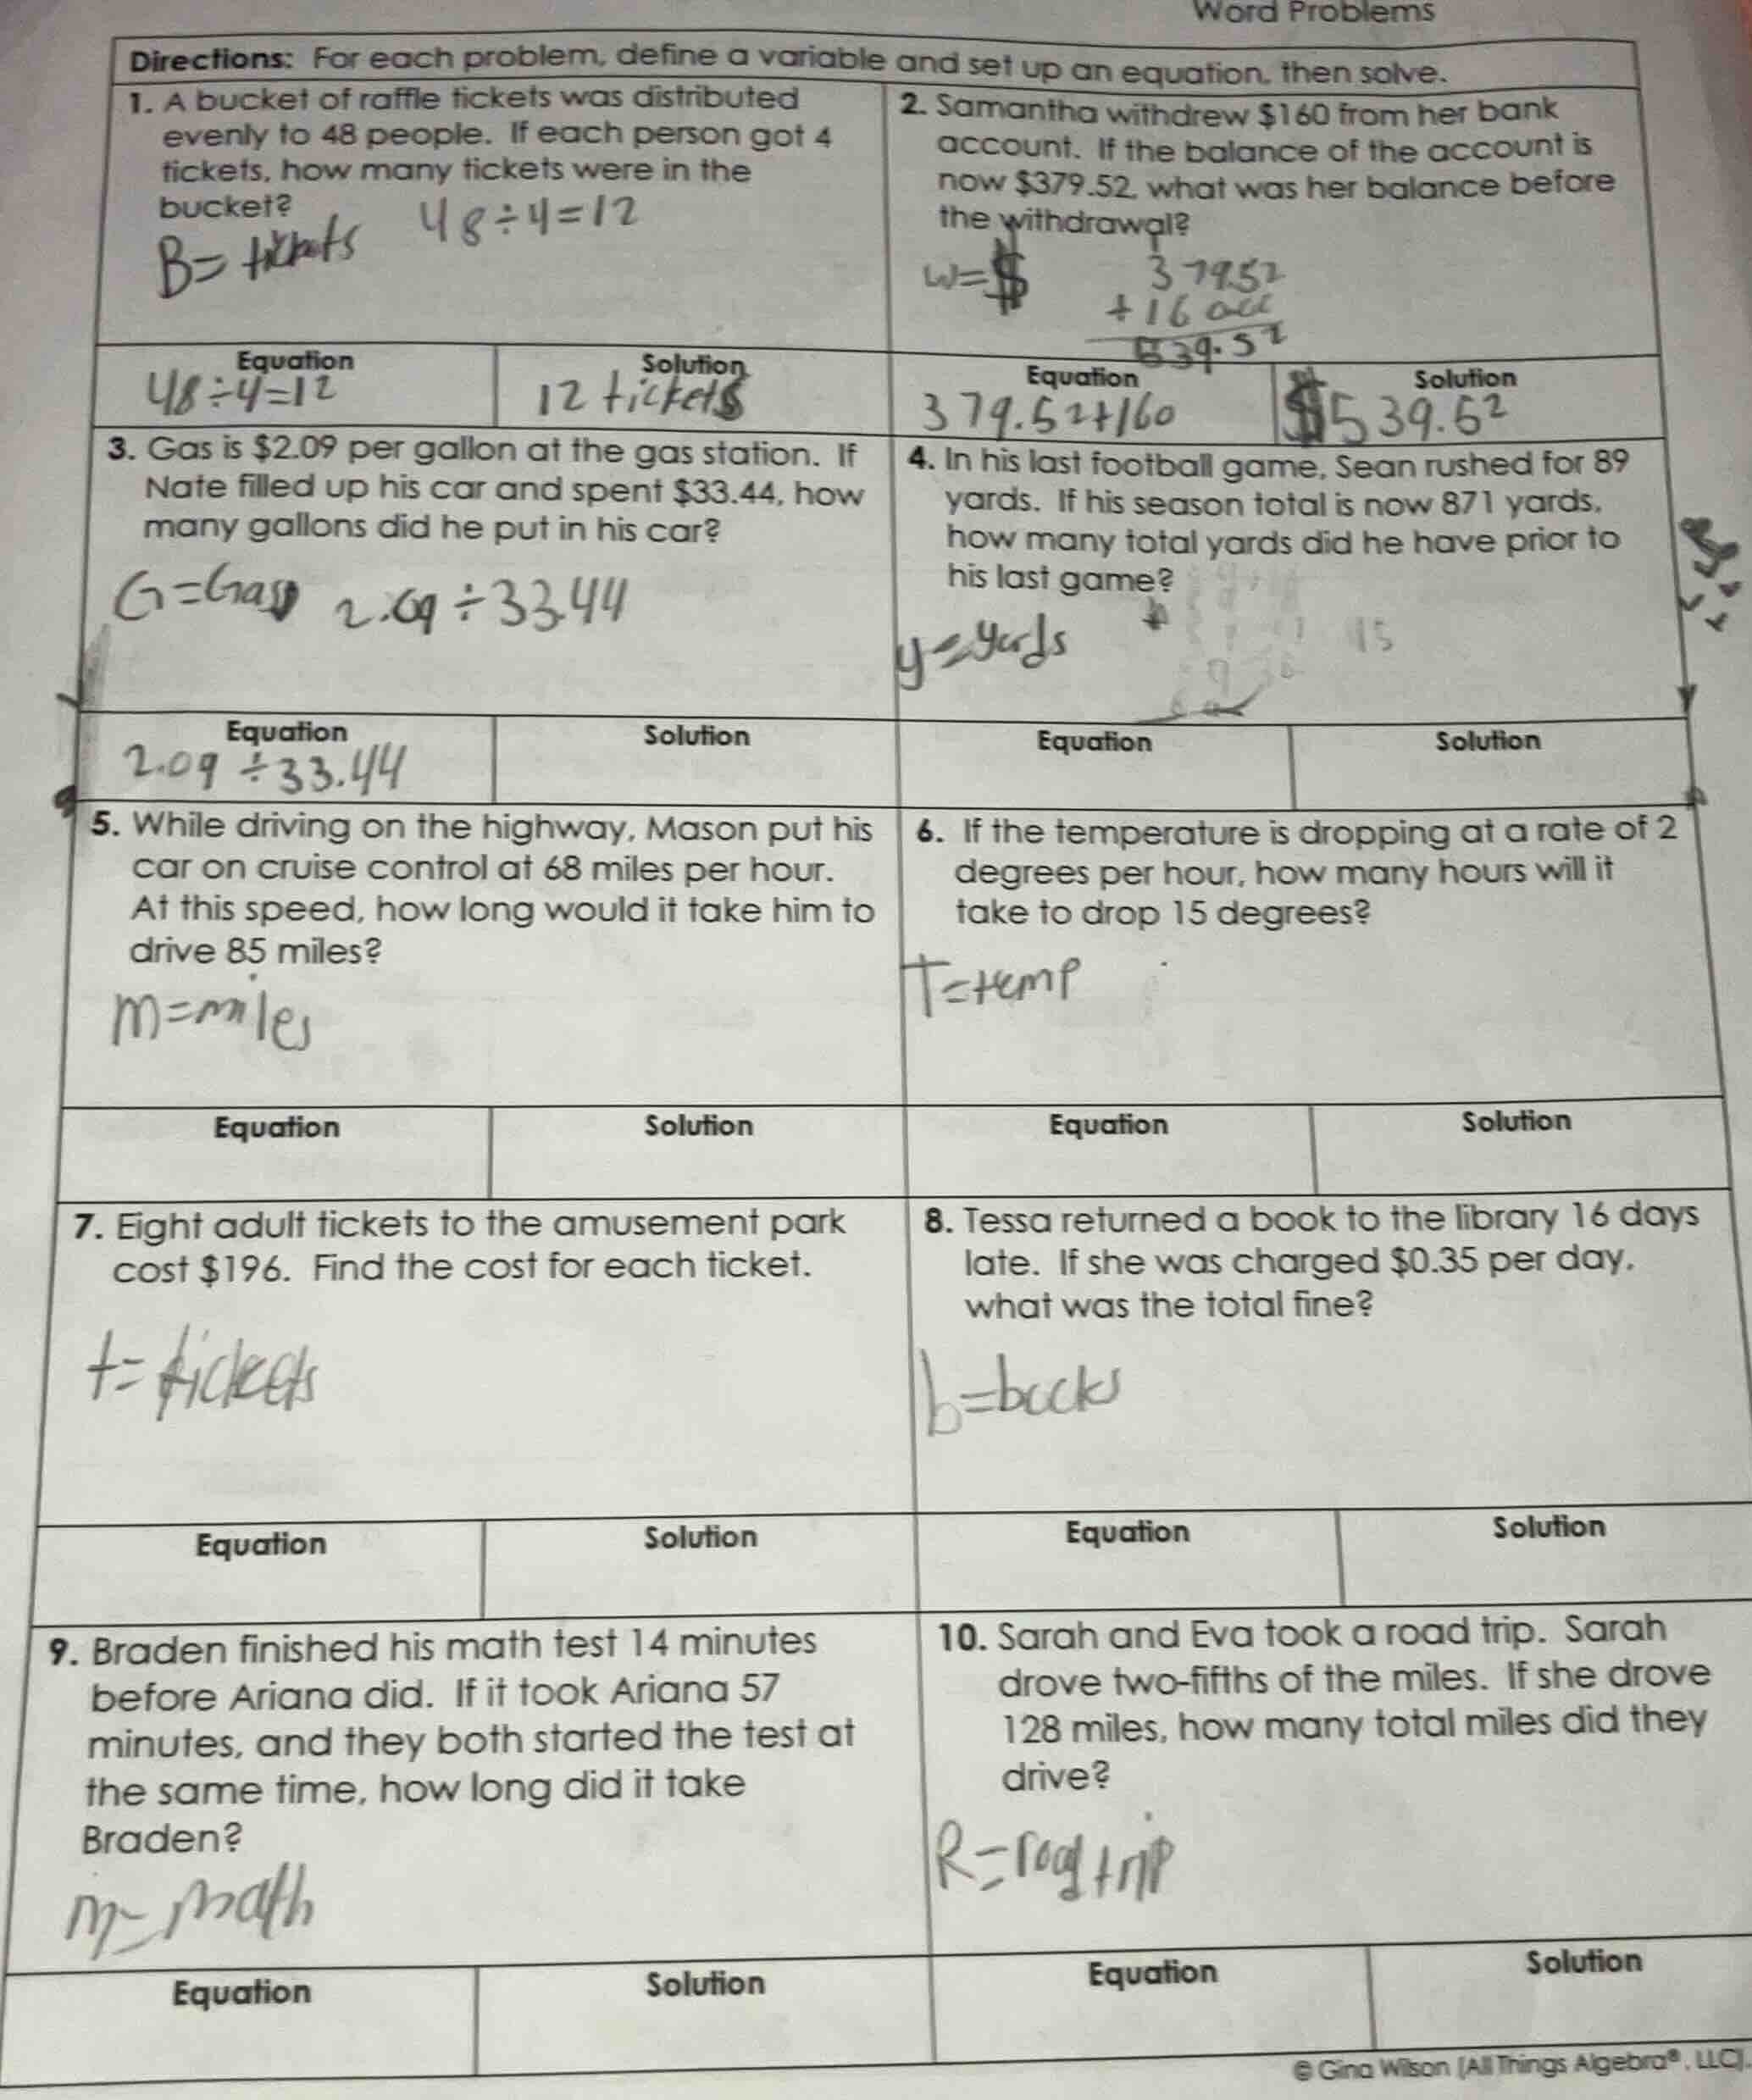 Word Problems
Directions: For each problem, define a variable and set up an equation, then solve.
1. A bucket of raffle tickets was distributed
evenly to 48 people. If each person got 4
tickets, how many tickets were in the
bucket?
B= tickets 48÷4=12
Equation
48÷4=12
Solution
12 tickets
2. Samantha withdrew $160 from her bank
account. If the balance of the account is
now $379.52, what was her balance before
the withdrawal?
w=$
379.52
+160.00
539.52
Equation
379.52+160
Solution
$539.52
3. Gas is $2.09 per gallon at the gas station. If
Nate filled up his car and spent $33.44, how
many gallons did he put in his car?
G=Gas 2.09÷33.44
Equation
2.09÷33.44
Solution
4. In his last football game, Sean rushed for 89
yards. If his season total is now 871 yards,
how many total yards did he have prior to
his last game?
y=yards
Equation
Solution
5. While driving on the highway, Mason put his
car on cruise control at 68 miles per hour.
At this speed, how long would it take him to
drive 85 miles?
m=miles
Equation
Solution
6. If the temperature is dropping at a rate of 2
degrees per hour, how many hours will it
take to drop 15 degrees?
T=temp
Equation
Solution
7. Eight adult tickets to the amusement park
cost $196. Find the cost for each ticket.
t= tickets
Equation
Solution
8. Tessa returned a book to the library 16 days
late. If she was charged $0.35 per day,
what was the total fine?
b=books
Equation
Solution
9. Braden finished his math test 14 minutes
before Ariana did. If it took Ariana 57
minutes, and they both started the test at
the same time, how long did it take
Braden?
m=math
Equation
Solution
10. Sarah and Eva took a road trip. Sarah
drove two-fifths of the miles. If she drove
128 miles, how many total miles did they
drive?
R=road trip
Equation
Solution
© Gina Wilson (All Things Algebra®, LLC),